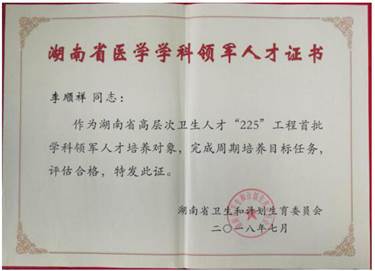 湖南省医学学科领军人才证书
李顺祥 同志：
作为湖南省高层次卫生人才“225”工程首批
学科领军人才培养对象，完成周期培养目标任务，
评估合格，特发此证。
湖南省卫生和计划生育委员会
二〇一八年七月